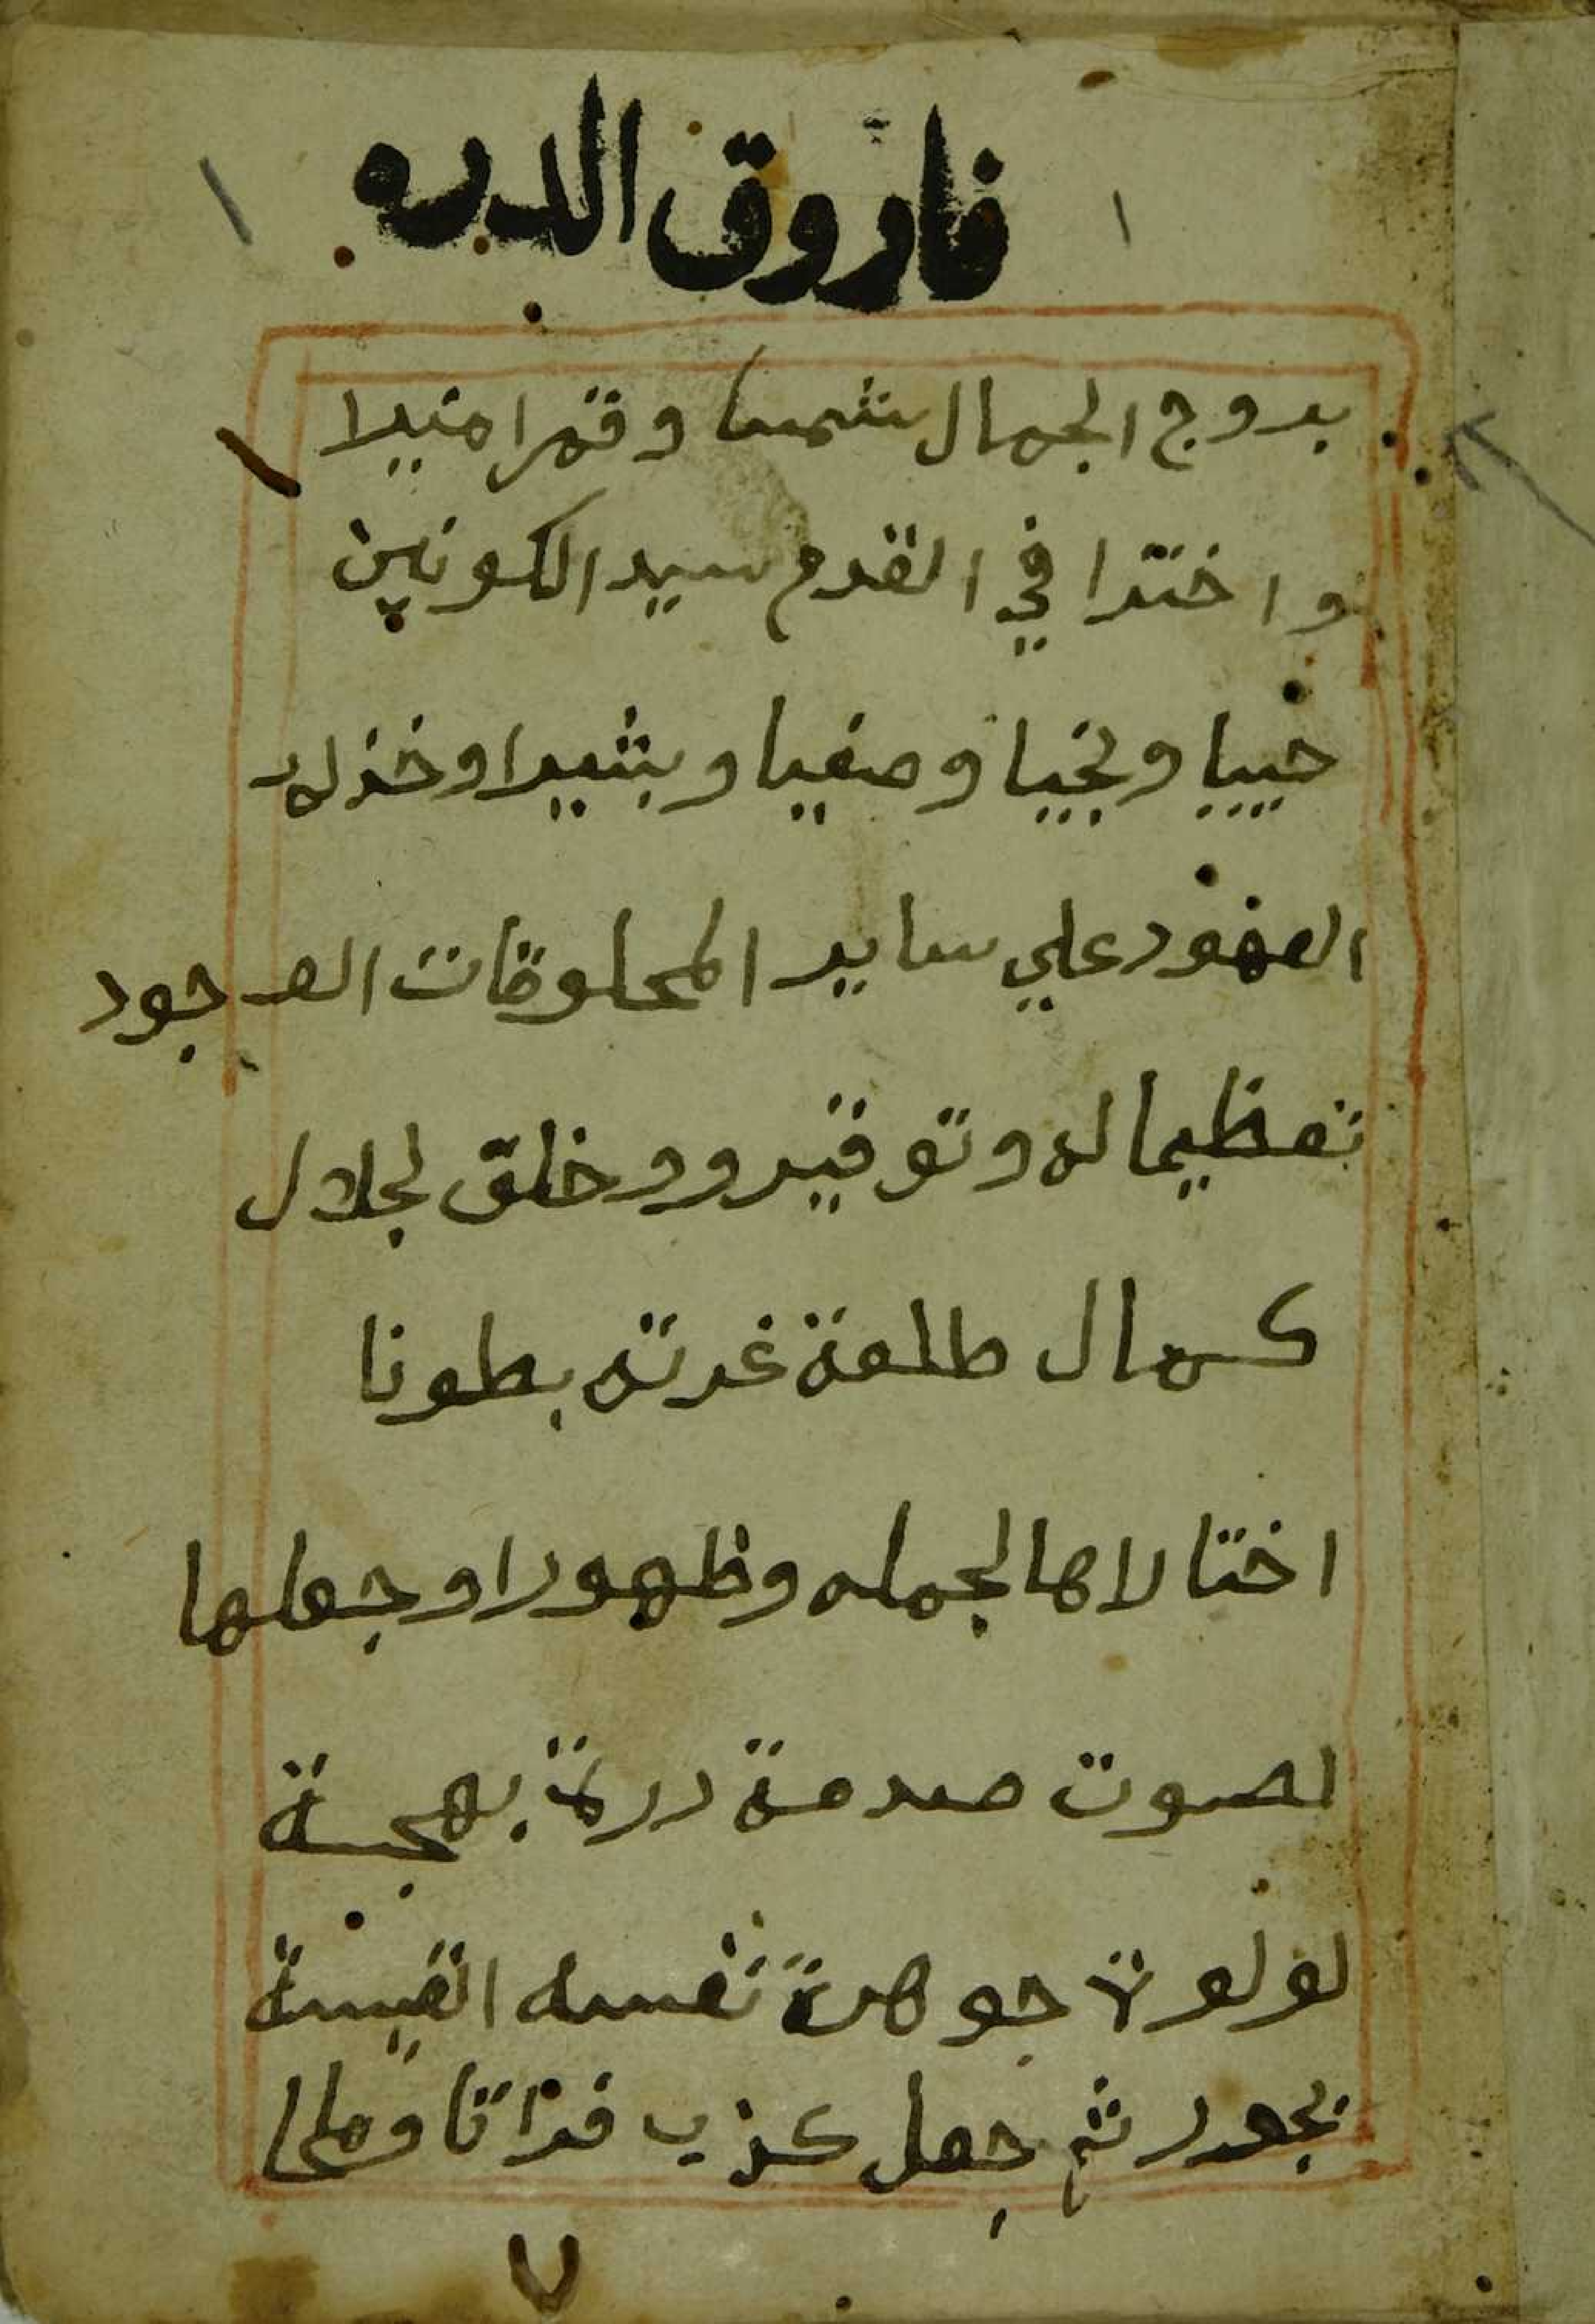 فاروق الدبره
١ ١
بروج الجمال شمسا وقمرا منيرا
واختدا في القدم سيد الكونين
حبيبا ونجيبا وصفيا وبشيرا وخذله
العهود علي ساير المخلوقات الموجود
تعظيما له وتوقيرو وخلق لجلال
كمال طلعة غرته بطونا
اختارها لجمله وظهورا وجعلها
لصوت صدمة دراة بهجة
لولوة جوهرة نفسه النفيسة
بحور ثم جعل عذب فراتا وملحا
٧